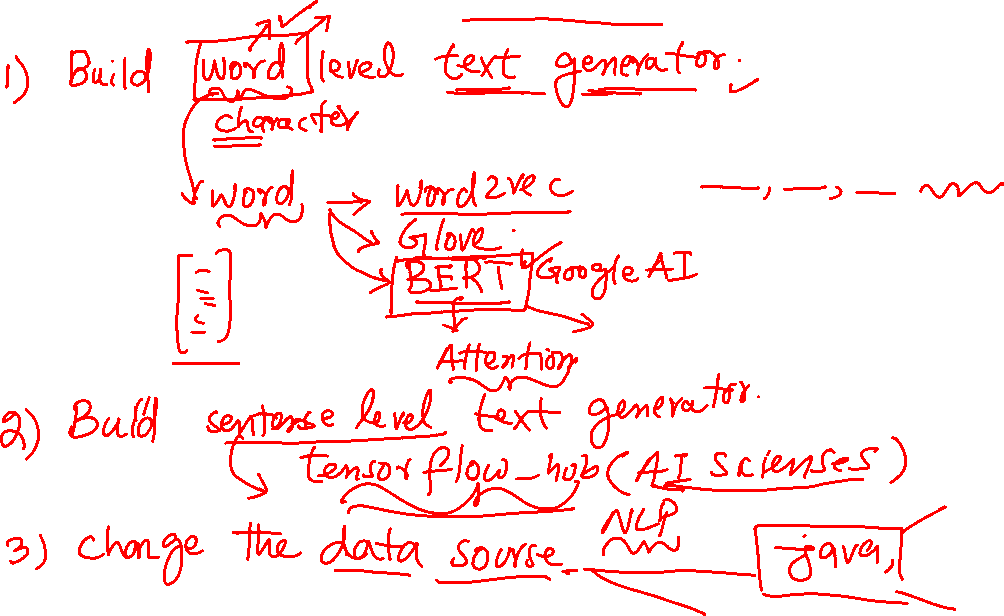 1) Build word level text generator.
character
word → word2vec
Glove.
BERT Google AI
Attention
2) Build sentense level text generator.
tensorflow_hub (AI scienses)
NLP
3) change the data sourse java,